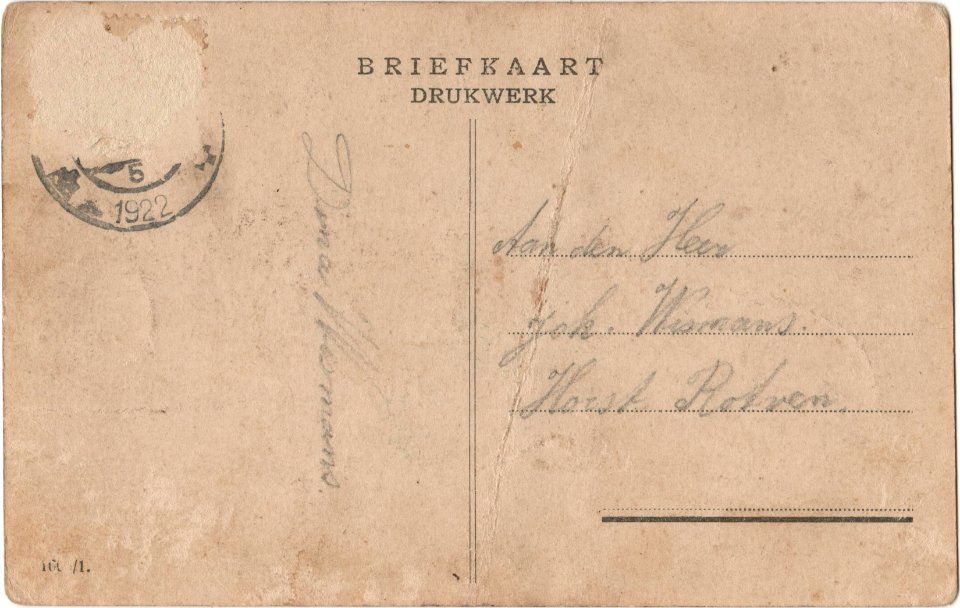 BRIEFKAART
DRUKWERK
5
1922
Aan den Heer
Joh. Wismans.
Horst Rotven.
Dina
/1.